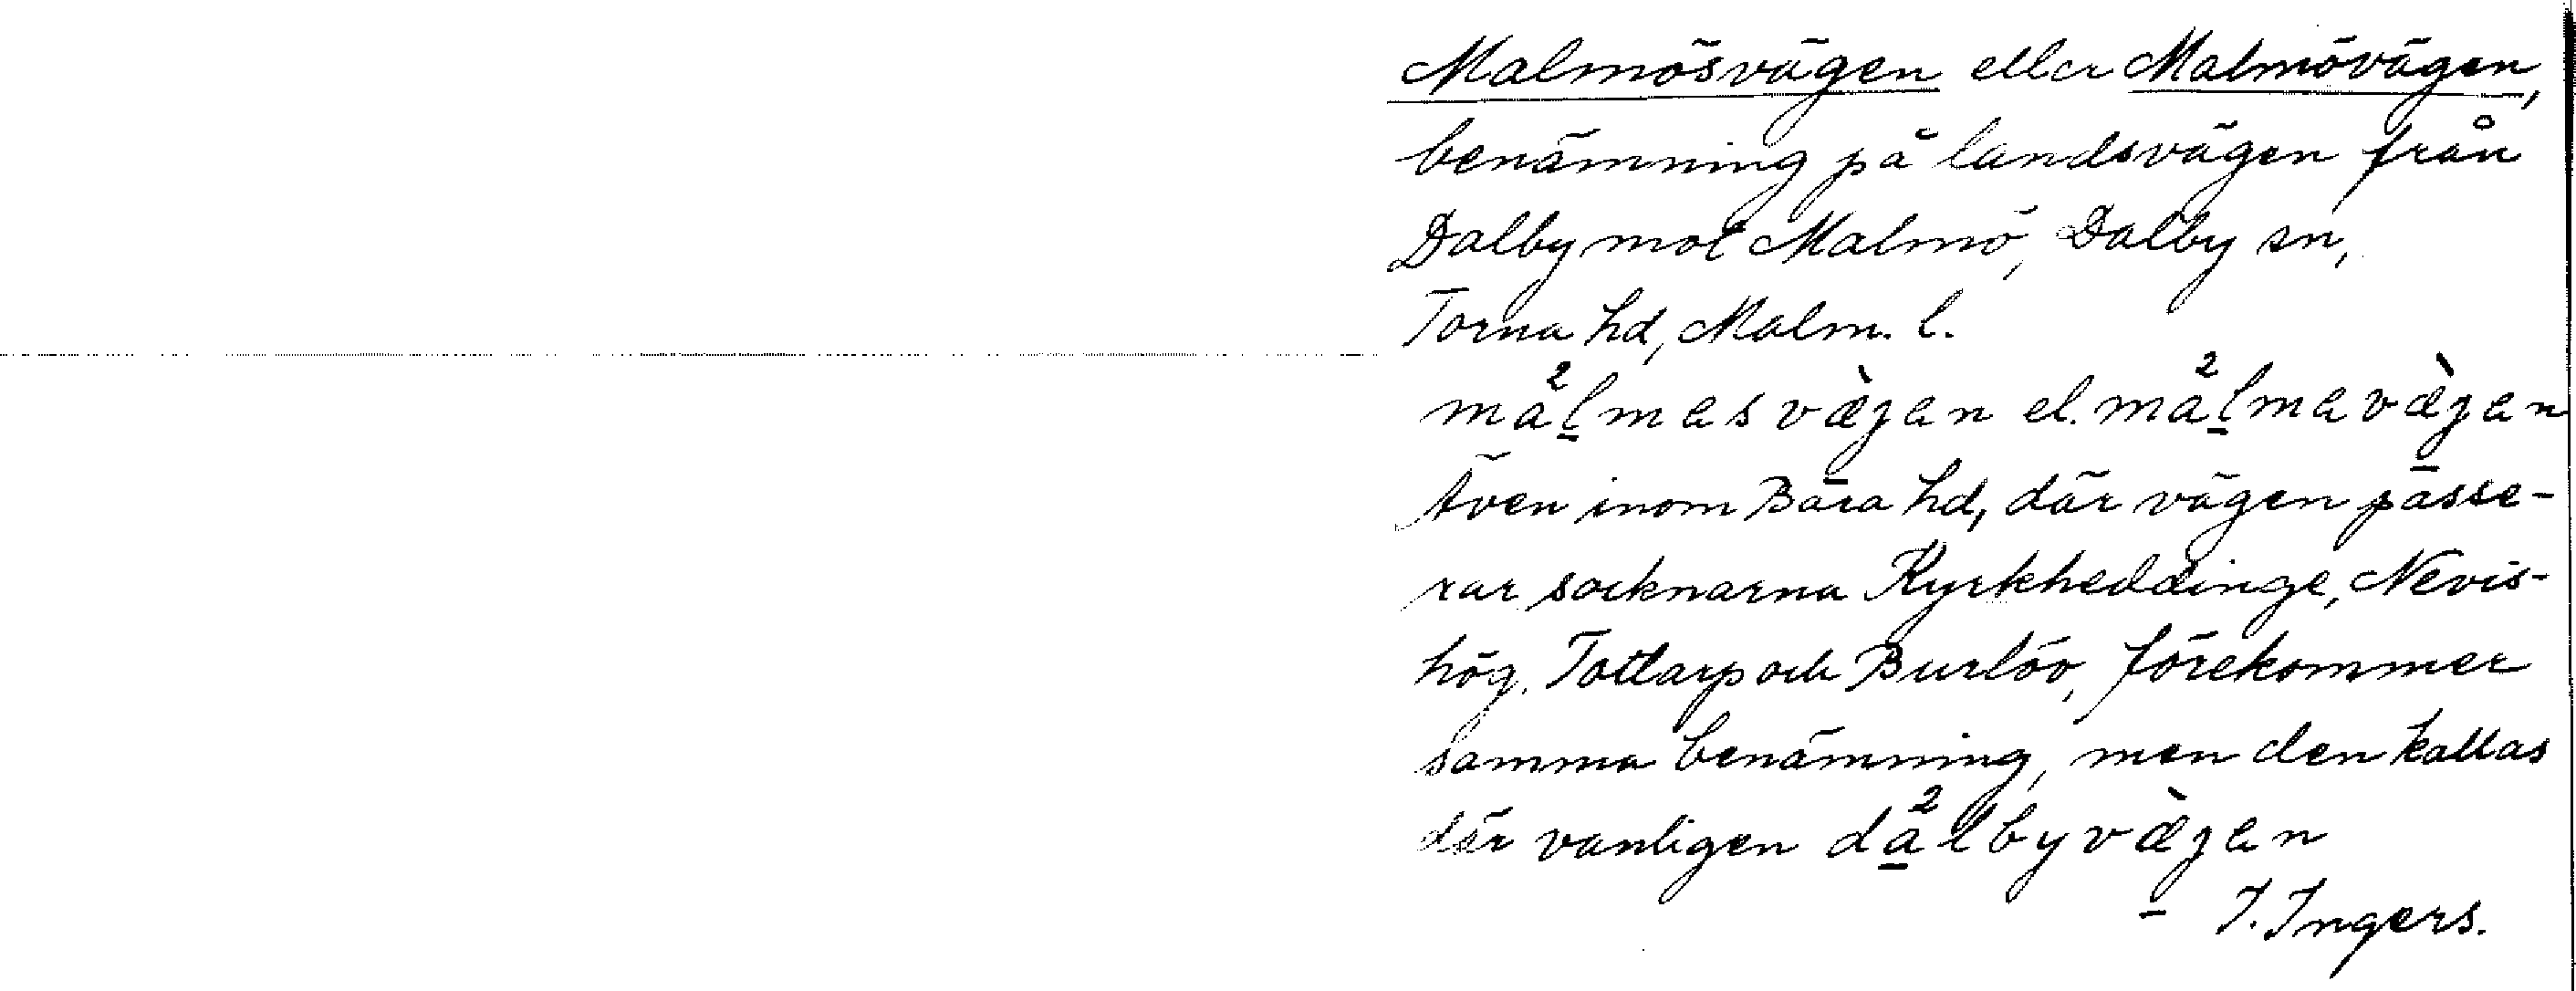 Malmösvägen eller Malmövägen,
benämning på landsvägen från
Dalby mot Malmö, Dalby sn,
Torna hd, Malm. l.
må²l̠masvæ̀jan el. må²l̠mavæ̀jan
Även inom Bara hd, där vägen passe-
rar socknarna Kyrkheddinge, Nevis-
hög, Tottarp och Burlöv, förekommer
samma benämning, men den kallas
där vanligen da̠²lbyvæ̀jan
I. Ingers.